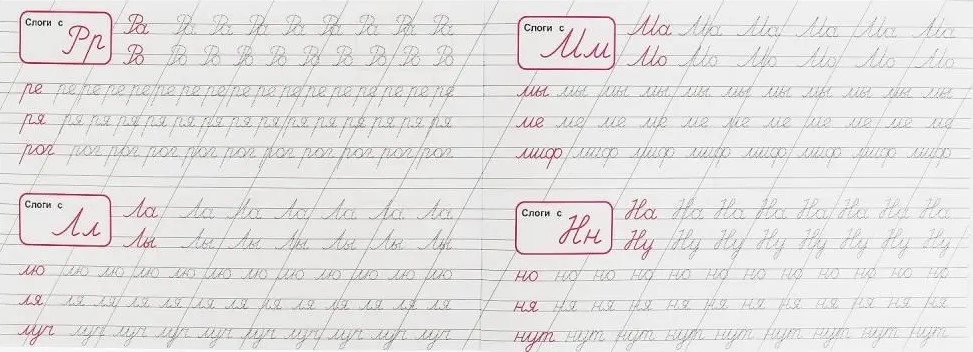 Слоги с Рр
Ра Ра Ра Ра Ра Ра Ра Ра
Ро Ро Ро Ро Ро Ро Ро Ро Ро Ро
ре ре ре ре ре ре ре ре ре ре ре ре ре ре ре ре ре
ря ря ря ря ря ря ря ря ря ря ря ря ря ря ря
рог рог рог рог рог рог рог рог рог рог рог
Слоги с Лл
Ла Ла Ла Ла Ла Ла Ла
Лы Лы Лы Лы Лы Лы Лы
лю лю лю лю лю лю лю лю лю лю лю
ля ля ля ля ля ля ля ля ля ля ля ля ля
луч луч луч луч луч луч луч луч луч луч
Слоги с Мм
Ма Ма Ма Ма Ма Ма
Мо Мо Мо Мо Мо Мо
мы мы мы мы мы мы мы мы мы мы мы
ме ме ме ме ме ме ме ме ме ме ме
миф миф миф миф миф миф миф миф
Слоги с Нн
На На На На На На На На
Ну Ну Ну Ну Ну Ну Ну Ну
но но но но но но но но но но но но
ня ня ня ня ня ня ня ня ня ня ня ня
нут нут нут нут нут нут нут нут нут